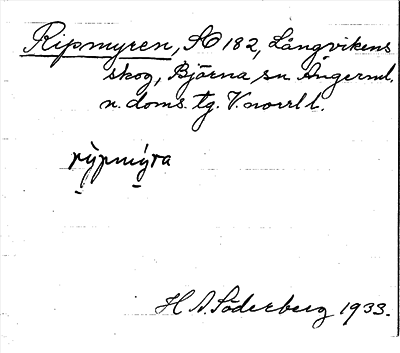 Ripmyren, AO 182, Långvikens
skog, Björna sn. Ångerml.
n. doms. tg. V.norrl l.
rýpmýra
H A. Söderberg 1933.